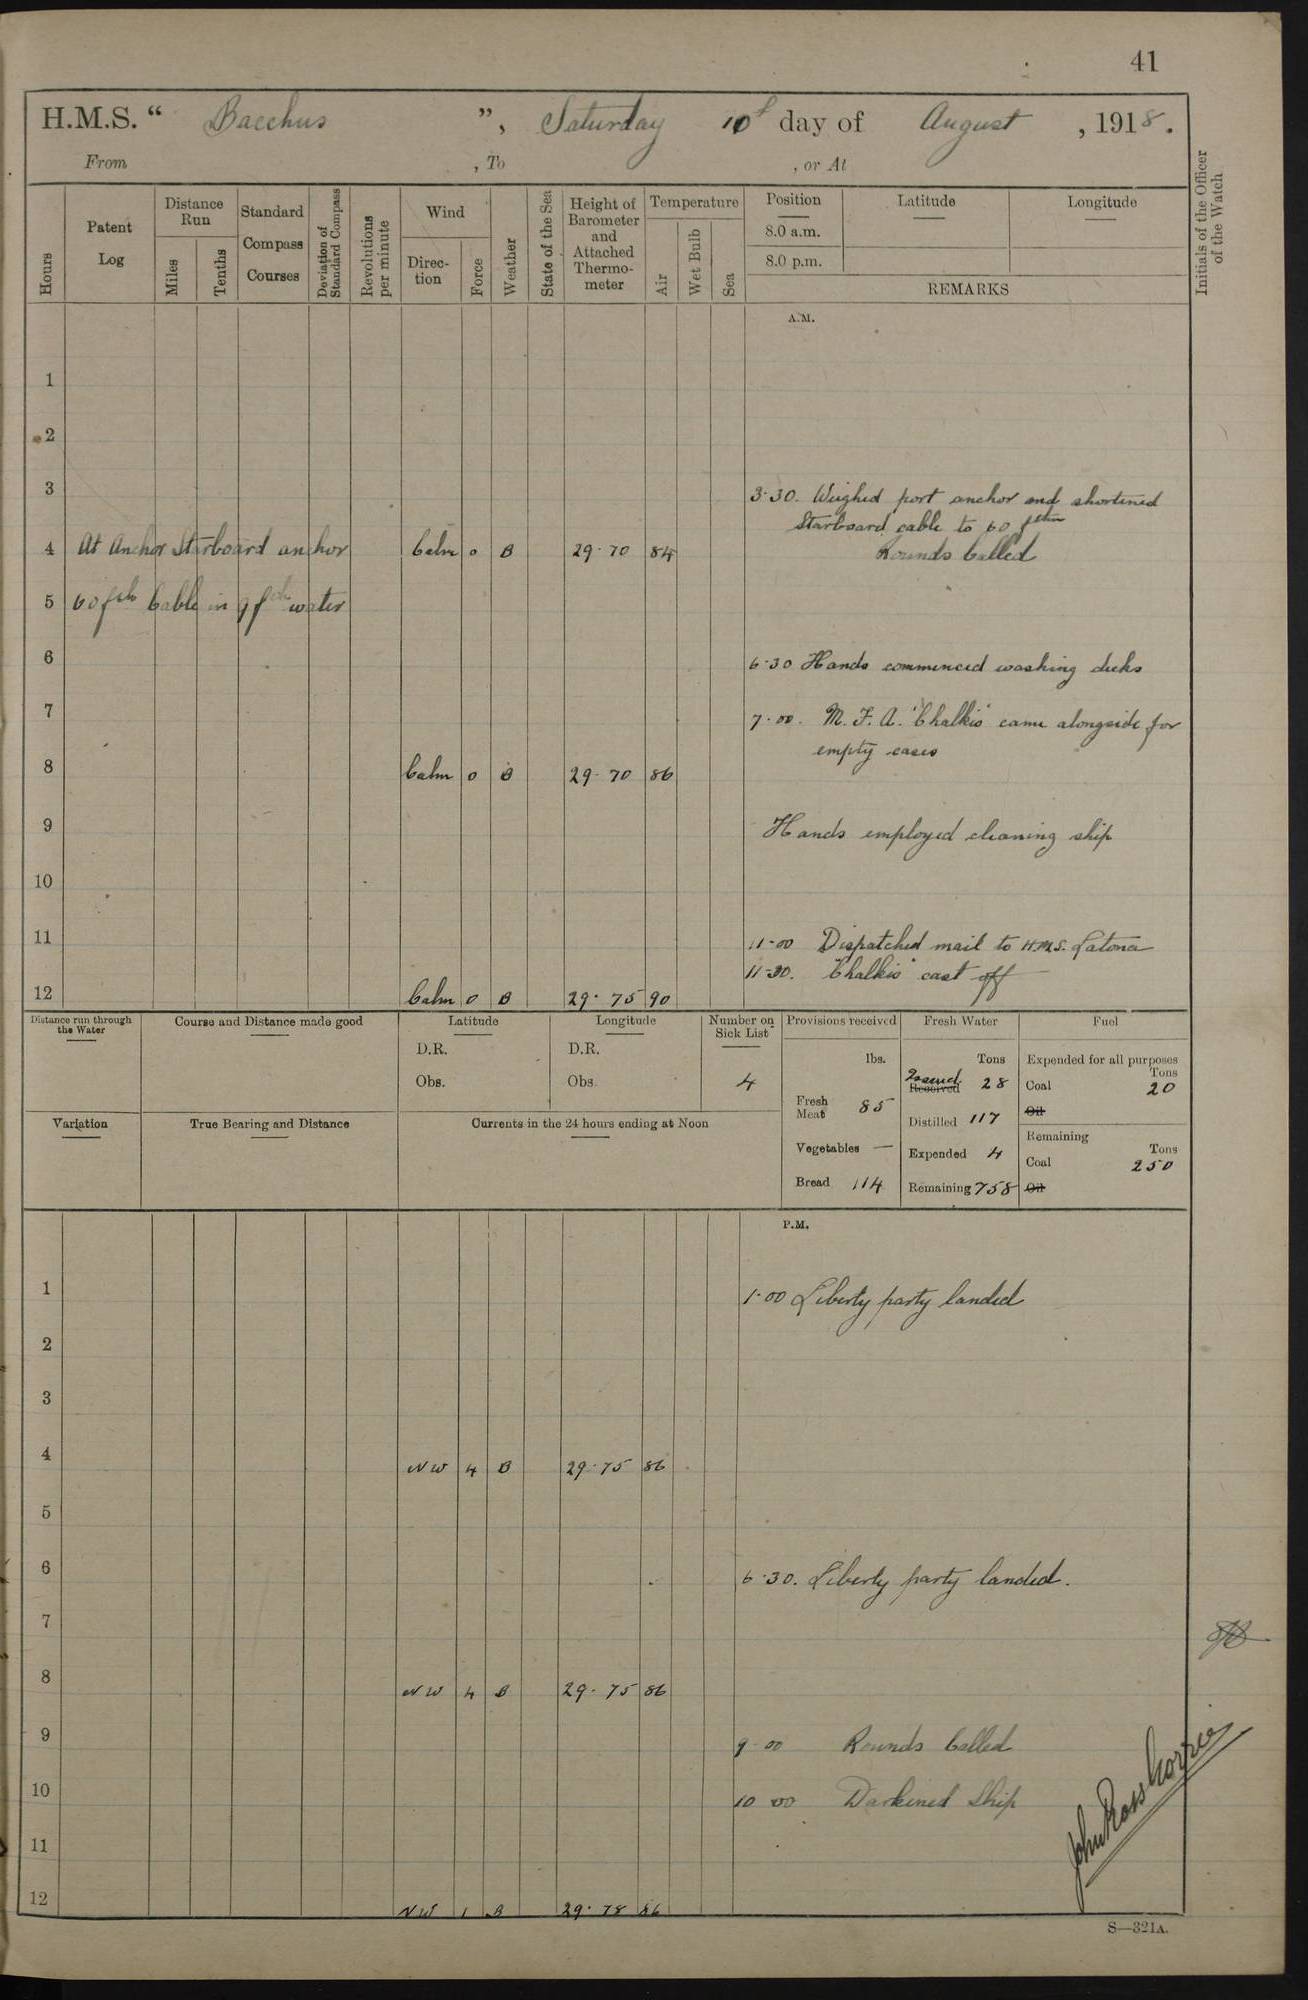 41
H.M.S. “ Bacchus ”, Saturday 10th day of August, 1918.
From , To , or At
Initials of the Officer of the Watch
Hours
Patent Log
Distance Run
Miles
Tenths
Standard Compass Courses
Deviation of Standard Compass
Revolutions per minute
Wind
Direction
Force
Weather
State of the Sea
Height of Barometer and Attached Thermometer
Temperature
Air
Wet Bulb
Sea
Position
Latitude
Longitude
8.0 a.m.
8.0 p.m.
REMARKS
A.M.
1
2
3
3·30. Weighed port anchor and shortened
Starboard cable to 60 fthm
4 At Anchor Starboard anchor Calm 0 B 29·70 84 Rounds Called
5 60 fth Cable in 9 fth water
6
6·30 Hands commenced washing decks
7
7·00. M.F.A. "Chalkis" came alongside for
empty cases
8 Calm 0 B 29·70 86
9 Hands employed cleaning ship
10
11 11-00 Dispatched mail to H.M.S. Latona
11-30. "Chalkis" cast off
12 Calm 0 B 29·75 90
Distance run through the Water
Course and Distance made good
Latitude
D.R.
Obs.
Longitude
D.R.
Obs.
Number on Sick List
4
Provisions received
lbs.
Fresh Meat 85
Vegetables —
Bread 114
Fresh Water
Tons
Issued Received 28
Distilled 117
Expended 4
Remaining 758
Fuel
Expended for all purposes
Tons
Coal 20
Oil
Remaining
Tons
Coal 250
Oil
Variation
True Bearing and Distance
Currents in the 24 hours ending at Noon
P.M.
1 1·00 Liberty party landed
2
3
4 NW 4 B 29·75 86
5
6 6·30. Liberty party landed.
7
8 NW 4 B 29·75 86
9 9-00 Rounds Called
10 10 00 Darkened Ship
11
12 NW 1 B 29·78 86
John Ross Corrie
S—321A.